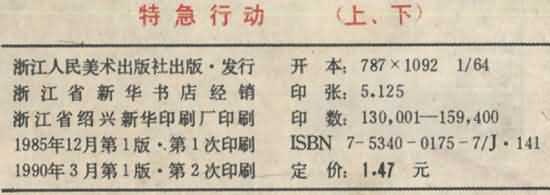 特急行动 (上、下)
浙江人民美术出版社出版·发行 开 本: 787×1092 1/64
浙江省新华书店经销 印 张: 5.125
浙江省绍兴新华印刷厂印刷 印 数: 130,001—159,400
1985年12月第1版·第1次印刷 ISBN 7-5340-0175-7/J·141
1990年3月第1版·第2次印刷 定 价: 1.47 元